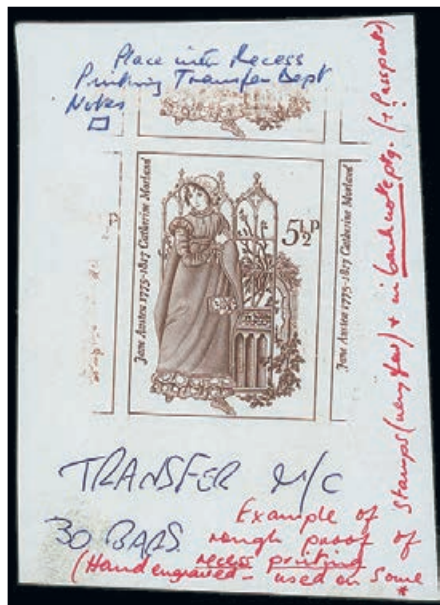 Place with Recess
Printing Transfer Dept
Notes
Jane Austen 1775-1817 Catherine Morland
5½P
Jane Austen 1775-1817 Catherine Morland
TRANSFER M/C
30 BARS
Example of
rough proof of
recess printing
(Hand engraved - used on some
*
stamps (very few) + in bank note ptg. (+ Passports)